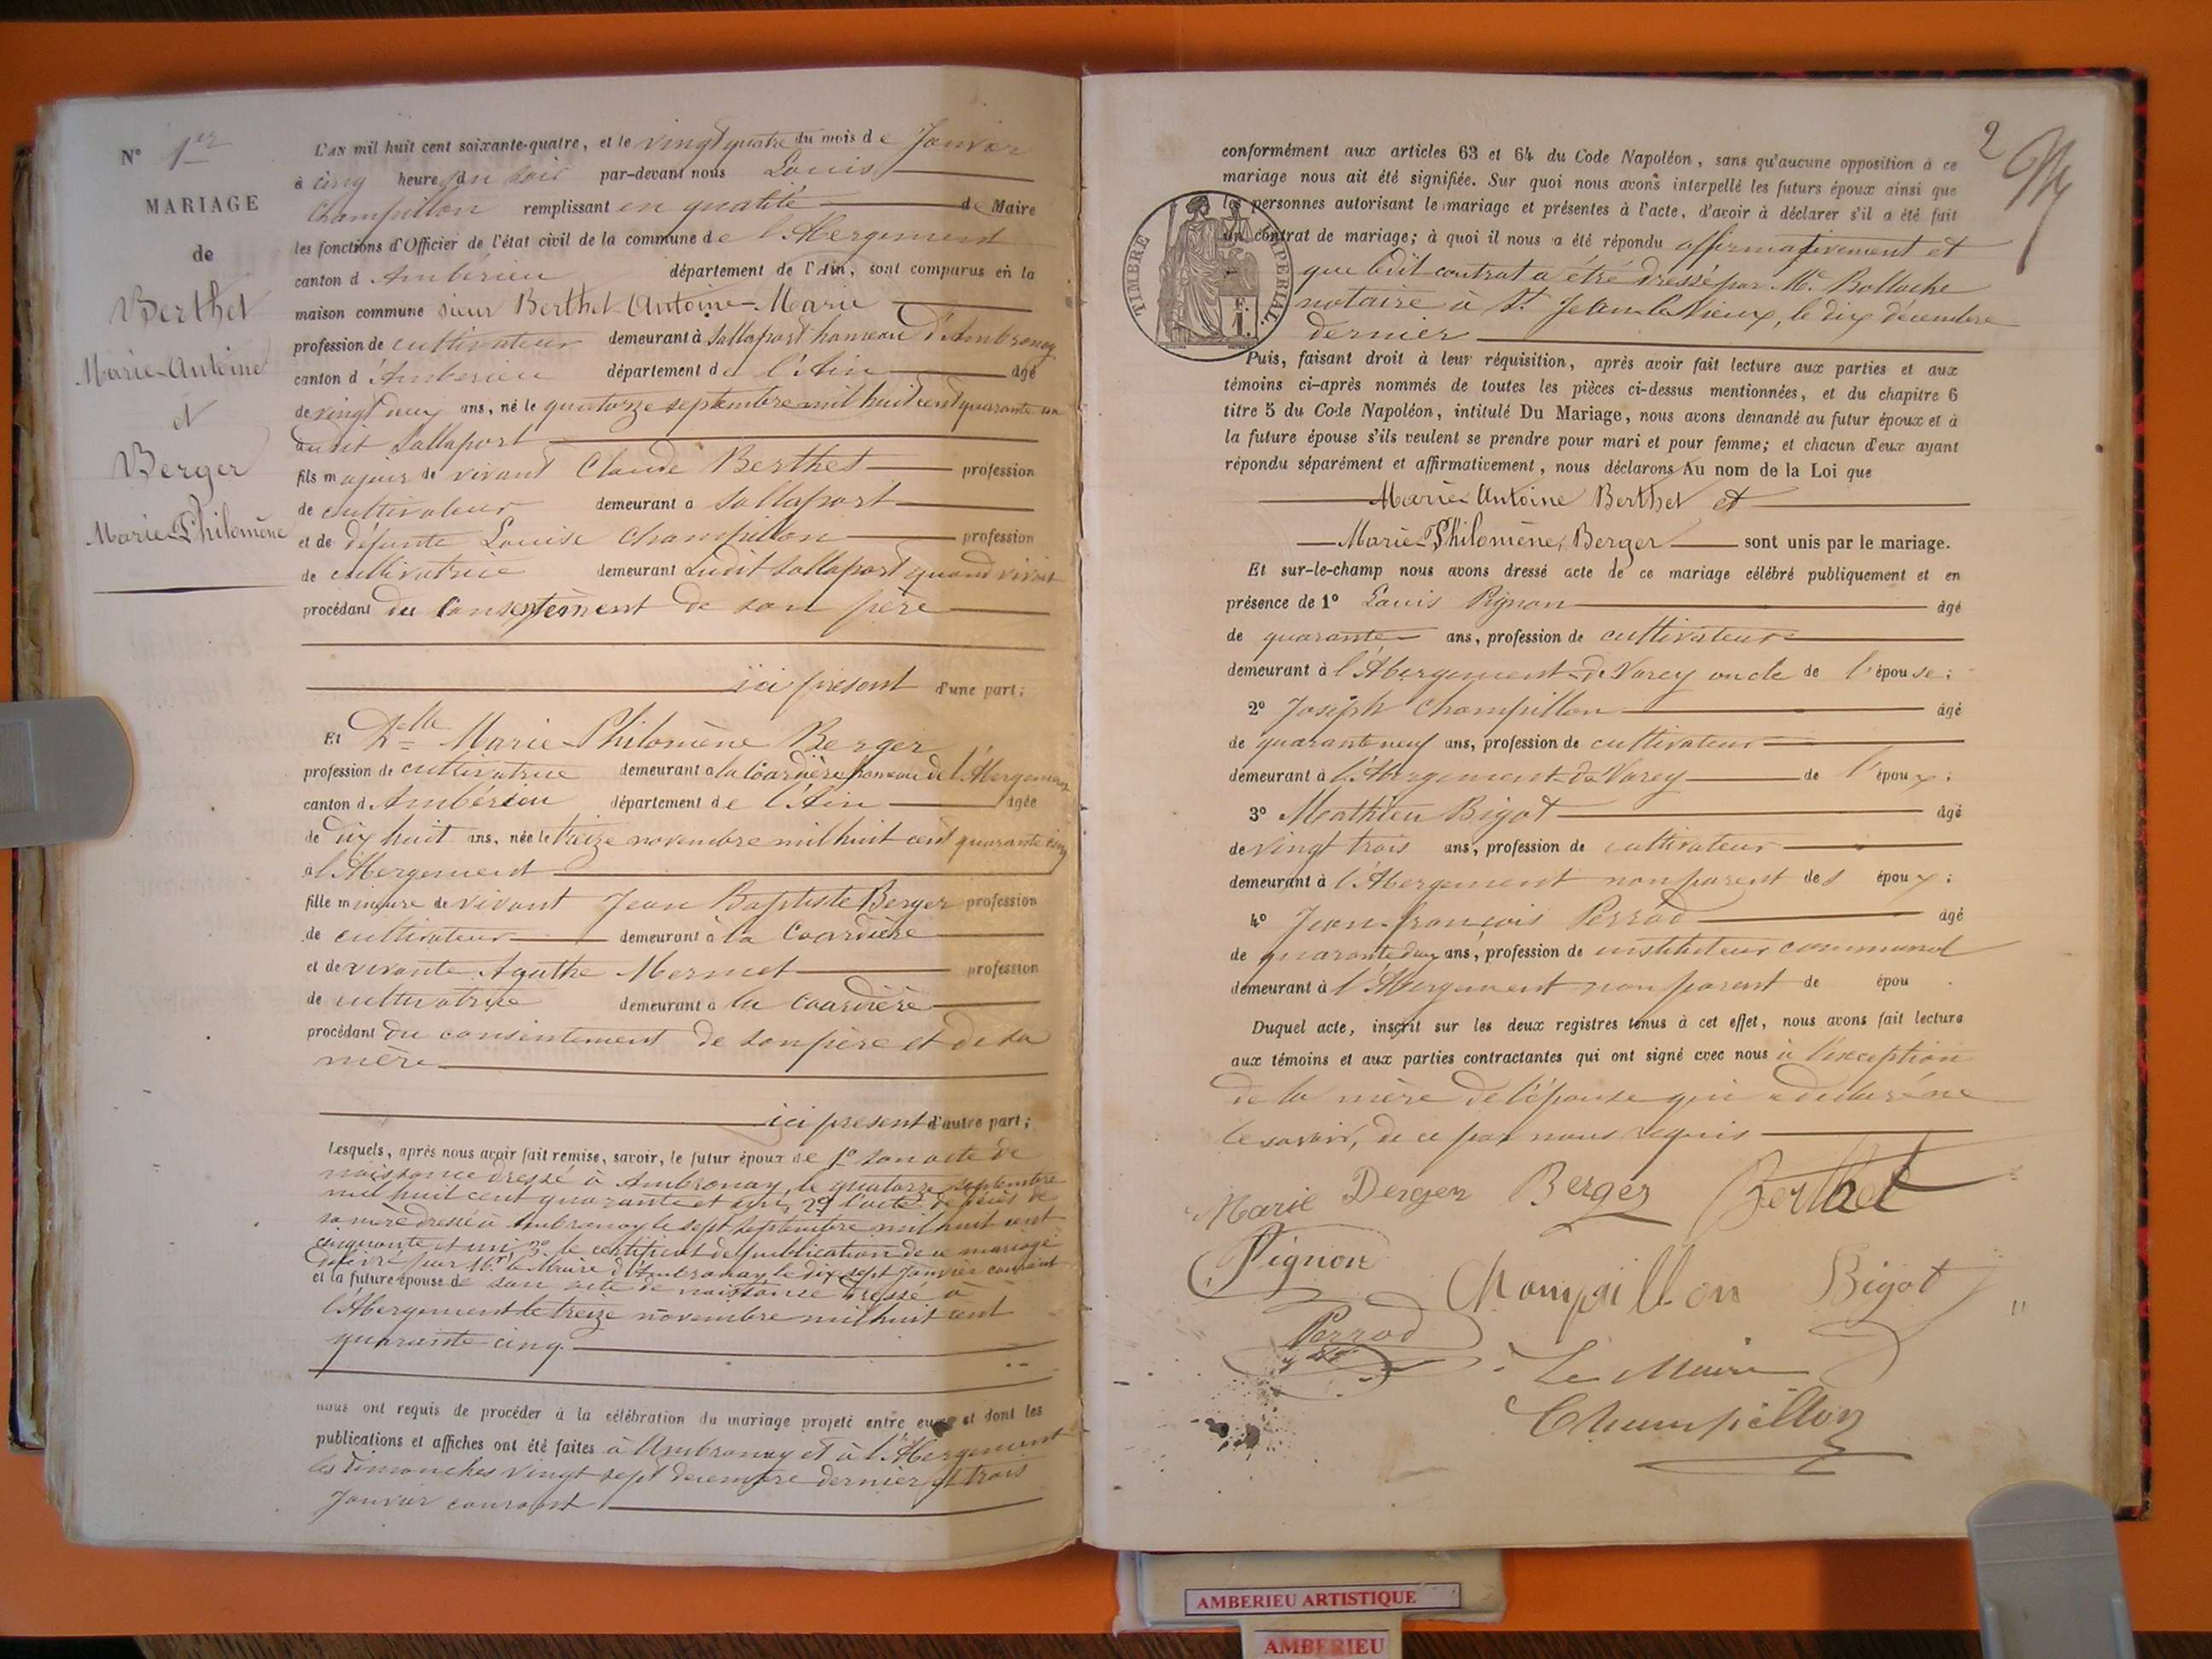 N° 1er
MARIAGE
de
Berthet
Marie-Antoine
et
Berger
Marie-Philomène
L'AN mil huit cent soixante-quatre, et le vingt quatre du mois de Janvier
à cinq heure du soir par-devant nous Louis
Champillon remplissant en qualité de Maire
les fonctions d'Officier de l'état civil de la commune de l'Abergement
canton d'Ambérieu département de l'Ain, sont comparus en la
maison commune sieur Berthet Antoine-Marie
profession de cultivateur demeurant à Sallaport hameau d'Ambronay
canton d'Amberieu département de l'Ain âgé
de vingt deux ans, né le quatorze septembre mil huit cent quarante un
audit Sallaport
fils majeur de vivant Claude Berthet profession
de cultivateur demeurant à Sallaport
et de défunte Louise Champillon profession
de cultivatrice demeurant audit Sallaport quand vivait
procédant du consentement de son père
ici présent d'une part;
Et Delle Marie Philomène Berger
profession de cultivatrice demeurant à la Coardière hameau de l'Abergement
canton d'Ambérieu département de l'Ain âgée
de dix huit ans, née le treize novembre mil huit cent quarante cinq
à l'Abergement
fille mineure de vivant Jean Baptiste Berger profession
de cultivateur demeurant à la Coardière
et de vivante Agathe Mermet profession
de cultivatrice demeurant à la Coardière
procédant du consentement de son père et de sa
mère
ici présent d'autre part;
Lesquels, après nous avoir fait remise, savoir, le futur époux de 1° son acte de
naissance dressé à Ambronay, le quatorze septembre
mil huit cent quarante et un, 2° l'acte de décès de
sa mère dressé à Ambronay le sept septembre mil huit cent
cinquante et un, 3° le certificat de publication de ce mariage
délivré par Mr le Maire d'Ambronay le dix sept Janvier courant
et la future épouse de son acte de naissance dressé à
l'Abergement le treize novembre mil huit cent
quarante cinq.
nous ont requis de procéder à la célébration du mariage projeté entre eux et dont les
publications et affiches ont été faites à Ambronay et à l'Abergement
les dimanches vingt sept décembre dernier et trois
Janvier courant
2
conformément aux articles 63 et 64 du Code Napoléon, sans qu'aucune opposition à ce
mariage nous ait été signifiée. Sur quoi nous avons interpellé les futurs époux ainsi que
les personnes autorisant le mariage et présentes à l'acte, d'avoir à déclarer s'il a été fait
un contrat de mariage; à quoi il nous a été répondu affirmativement et
que ledit contrat a étré dressé par Me Ballache
notaire à St Jean-le-Vieux, le dix décembre
dernier
TIMBRE IMPERIAL.
F.
1.
Puis, faisant droit à leur réquisition, après avoir fait lecture aux parties et aux
témoins ci-après nommés de toutes les pièces ci-dessus mentionnées, et du chapitre 6
titre 5 du Code Napoléon, intitulé Du Mariage, nous avons demandé au futur époux et à
la future épouse s'ils veulent se prendre pour mari et pour femme; et chacun d'eux ayant
répondu séparément et affirmativement, nous déclarons Au nom de la Loi que
Marie Antoine Berthet et
Marie-Philomène Berger sont unis par le mariage.
Et sur-le-champ nous avons dressé acte de ce mariage célébré publiquement et en
présence de 1° Louis Pignon âgé
de quarante ans, profession de cultivateur
demeurant à l'Abergement-de-Varey oncle de l'épouse;
2° Joseph Champillon âgé
de quarante neuf ans, profession de cultivateur
demeurant à l'Abergement-de-Varey de l'époux;
3° Mathieu Bigot âgé
de vingt trois ans, profession de cultivateur
demeurant à l'Abergement non parent des époux;
4° Jean-françois Perrod âgé
de quarante deux ans, profession de instituteur communal
demeurant à l'Abergement non parent de épou .
Duquel acte, inscrit sur les deux registres tenus à cet effet, nous avons fait lecture
aux témoins et aux parties contractantes qui ont signé avec nous à l'exception
de la mère de l'épouse qui a déclaré ne
le savoir, de ce par nous requis
Marie Berger Berger Berthet
Pignon Champaillon Bigot
Perrod
Le Maire
Champillon
AMBERIEU ARTISTIQUE
AMBERIEU